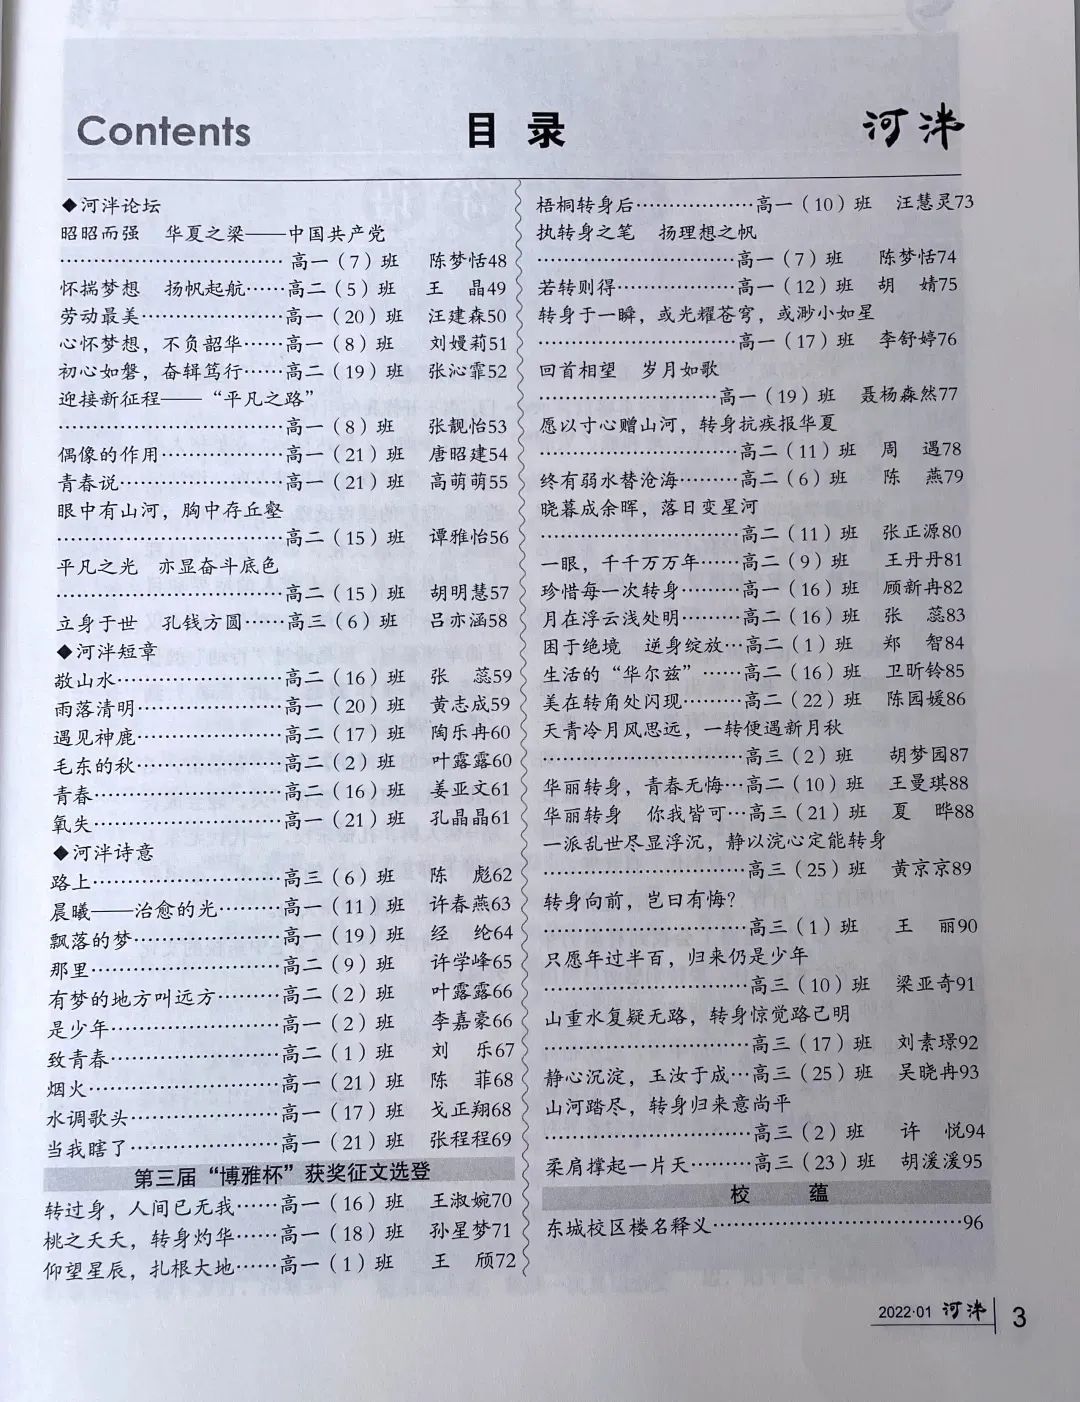 Contents
目 录
河泮
◆河泮论坛
昭昭而强 华夏之梁——中国共产党
……………………………高一(7)班 陈梦恬48
怀揣梦想 扬帆起航……高二(5)班 王 晶49
劳动最美…………………高一(20)班 汪建森50
心怀梦想，不负韶华……高一(8)班 刘嫚莉51
初心如磐，奋辑笃行……高二(19)班 张沁霏52
迎接新征程——“平凡之路”
……………………………高一(8)班 张靓怡53
偶像的作用………………高一(21)班 唐昭建54
青春说……………………高一(21)班 高萌萌55
眼中有山河，胸中存丘壑
……………………………高二(15)班 谭雅怡56
平凡之光 亦显奋斗底色
……………………………高二(15)班 胡明慧57
立身于世 孔钱方圆……高三(6)班 吕亦涵58
◆河泮短章
敬山水……………………高二(16)班 张 蕊59
雨落清明…………………高一(20)班 黄志成59
遇见神鹿…………………高二(17)班 陶乐冉60
毛东的秋…………………高二(2)班 叶露露60
青春………………………高二(16)班 姜亚文61
氧失………………………高一(21)班 孔晶晶61
◆河泮诗意
路上………………………高三(6)班 陈 彪62
晨曦——治愈的光………高一(11)班 许春燕63
飘落的梦…………………高一(19)班 经 纶64
那里………………………高二(9)班 许学峰65
有梦的地方叫远方………高二(2)班 叶露露66
是少年……………………高一(2)班 李嘉豪66
致青春……………………高二(1)班 刘 乐67
烟火………………………高一(21)班 陈 菲68
水调歌头…………………高一(17)班 戈正翔68
当我瞎了…………………高一(21)班 张程程69
第三届“博雅杯”获奖征文选登
转过身，人间已无我……高一(16)班 王淑婉70
桃之夭夭，转身灼华……高一(18)班 孙星梦71
仰望星辰，扎根大地……高一(1)班 王 颀72
梧桐转身后………………高一(10)班 汪慧灵73
执转身之笔 扬理想之帆
…………………………高一(7)班 陈梦恬74
若转则得………………高一(12)班 胡 婧75
转身于一瞬，或光耀苍穹，或渺小如星
…………………………高一(17)班 李舒婷76
回首相望 岁月如歌
………………………高一(19)班 聂杨淼然77
愿以寸心赠山河，转身抗疾报华夏
…………………………高二(11)班 周 遇78
终有弱水替沧海………高二(6)班 陈 燕79
晓暮成余晖，落日变星河
…………………………高二(11)班 张正源80
一眼，千千万万年……高二(9)班 王丹丹81
珍惜每一次转身………高一(16)班 顾新冉82
月在浮云浅处明………高二(16)班 张 蕊83
困于绝境 逆身绽放…高二(1)班 郑 智84
生活的“华尔兹”……高二(16)班 卫昕铃85
美在转角处闪现………高二(22)班 陈园媛86
天青冷月风思远，一转便遇新月秋
…………………………高三(2)班 胡梦园87
华丽转身，青春无悔…高二(10)班 王曼琪88
华丽转身 你我皆可…高三(21)班 夏 晔88
一派乱世尽显浮沉，静以浣心定能转身
…………………………高三(25)班 黄京京89
转身向前，岂曰有悔？
…………………………高三(1)班 王 丽90
只愿年过半百，归来仍是少年
…………………………高三(10)班 梁亚奇91
山重水复疑无路，转身惊觉路已明
…………………………高三(17)班 刘素璟92
静心沉淀，玉汝于成…高三(25)班 吴晓冉93
山河踏尽，转身归来意尚平
…………………………高三(2)班 许 悦94
柔肩撑起一片天………高三(23)班 胡湲湲95
校 蕴
东城校区楼名释义………………………………96
2022·01 河泮 3